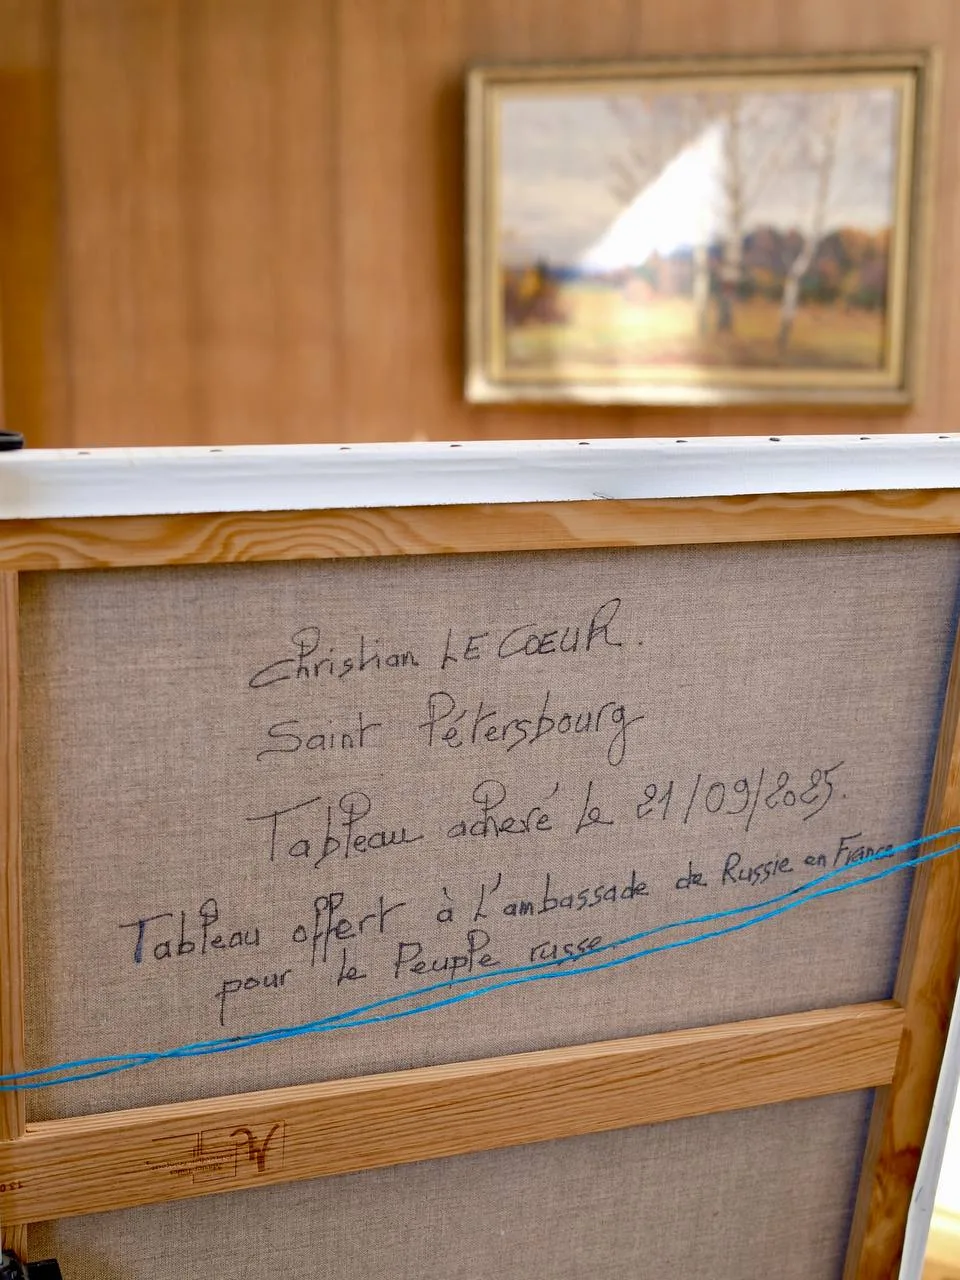 Christian LE COEUR.
Saint Pétersbourg
Tableau achevé le 21/09/2025.
Tableau offert à L'ambassade de Russie en France
pour le Peuple russe